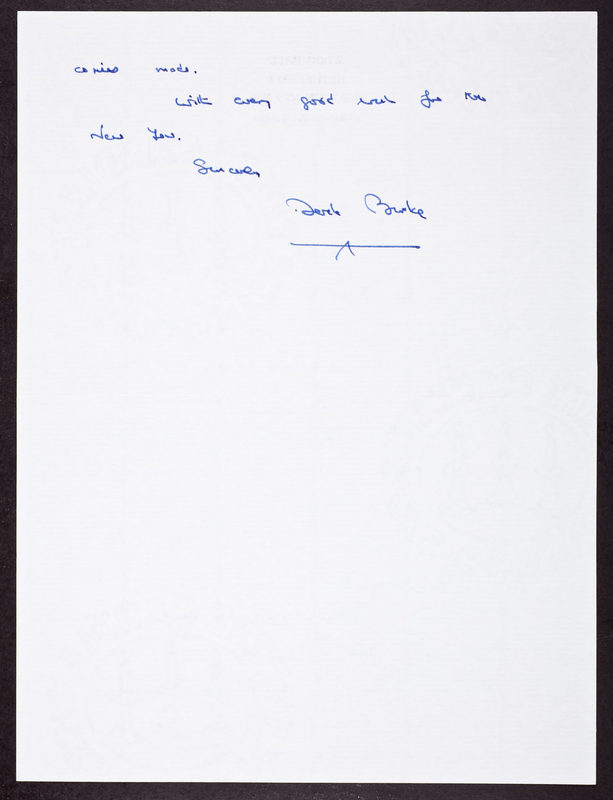 copies made.
With every good wish for the
New Year.
Sincerely
Derek Burke